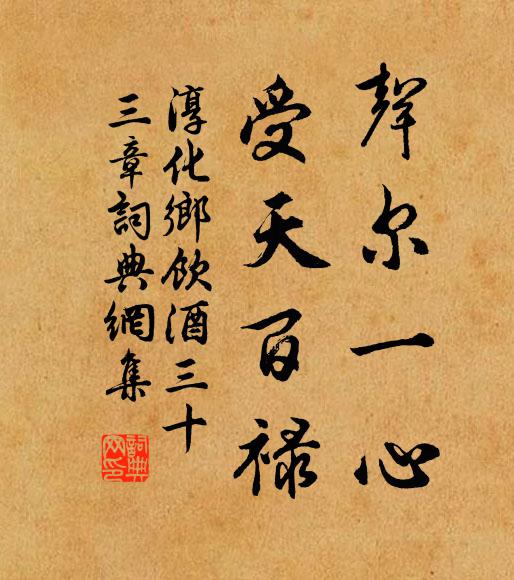 殚尔一心
受天百禄
淳化鄉飲酒三十
三章詞典網集
詞典
网印